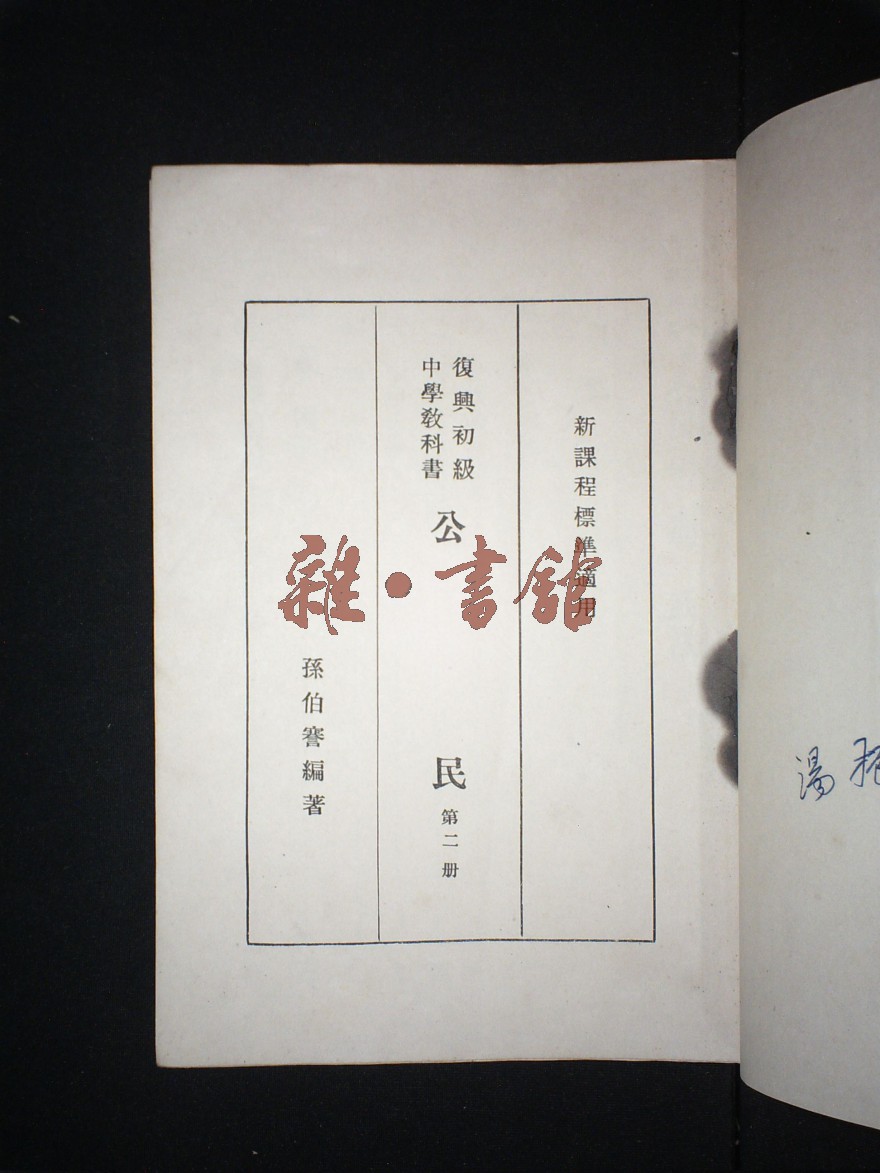 新課程標準適用
復興初級
中學教科書
公民 第二册
孫伯謇編著
雜·書館
湯